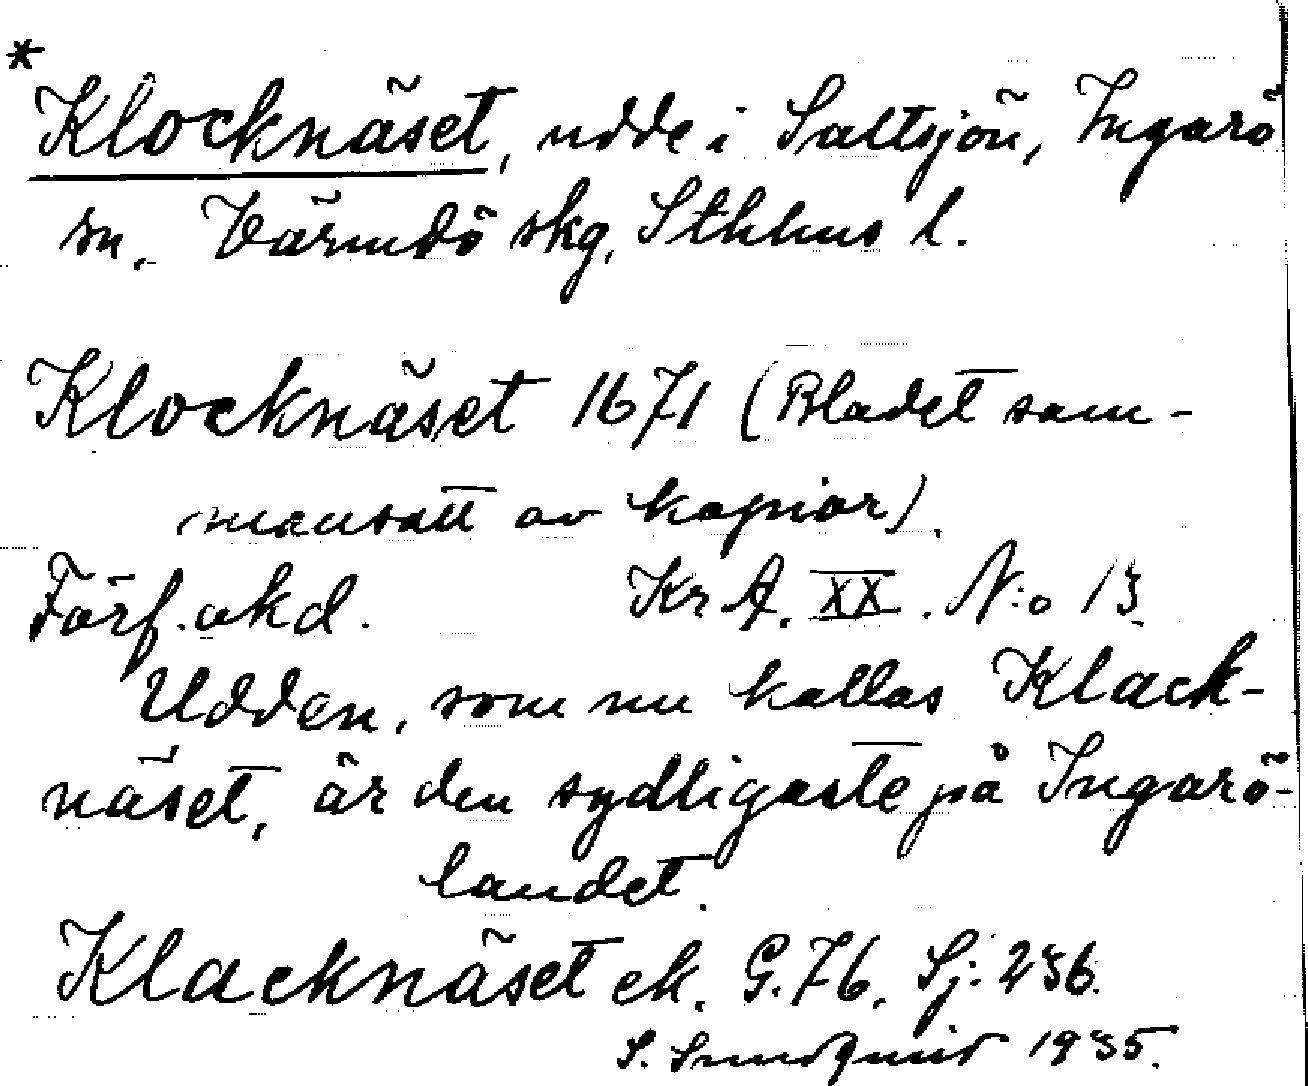 *
Klocknäset, udde i Saltsjön, Ingarö
sn. Värmdö skg, Sthlms l.
Klocknäset 1671 (Bladet sam-
mansatt av kopior).
Förf. okd. Kr A. XX. N:o 13
Udden, som nu kallas Klack-
näset, är den sydligaste på Ingarö-
landet.
Klacknäset ek. G. 76. Sj: 236.
S. Sundquist 1935.